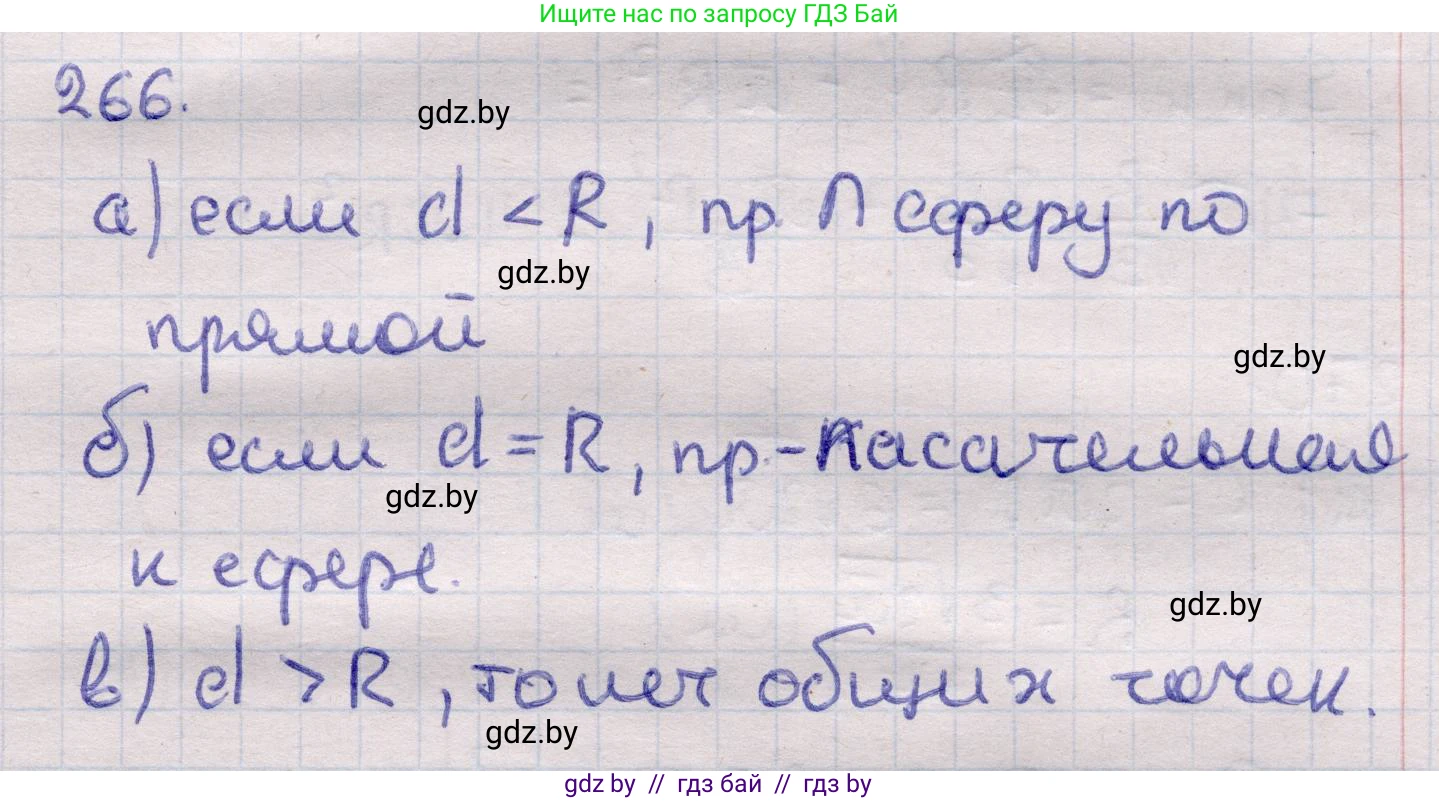 Ищите нас по запросу ГДЗ Бай
266.
gdz.by
а) если d < R, пр. ∩ сферу по
gdz.by
прямой
gdz.by
б) если d = R, пр. - касательная
gdz.by
к сфере.
gdz.by
в) d > R, то нет общих точек.
gdz.by
gdz.by // гдз бай // гдз by